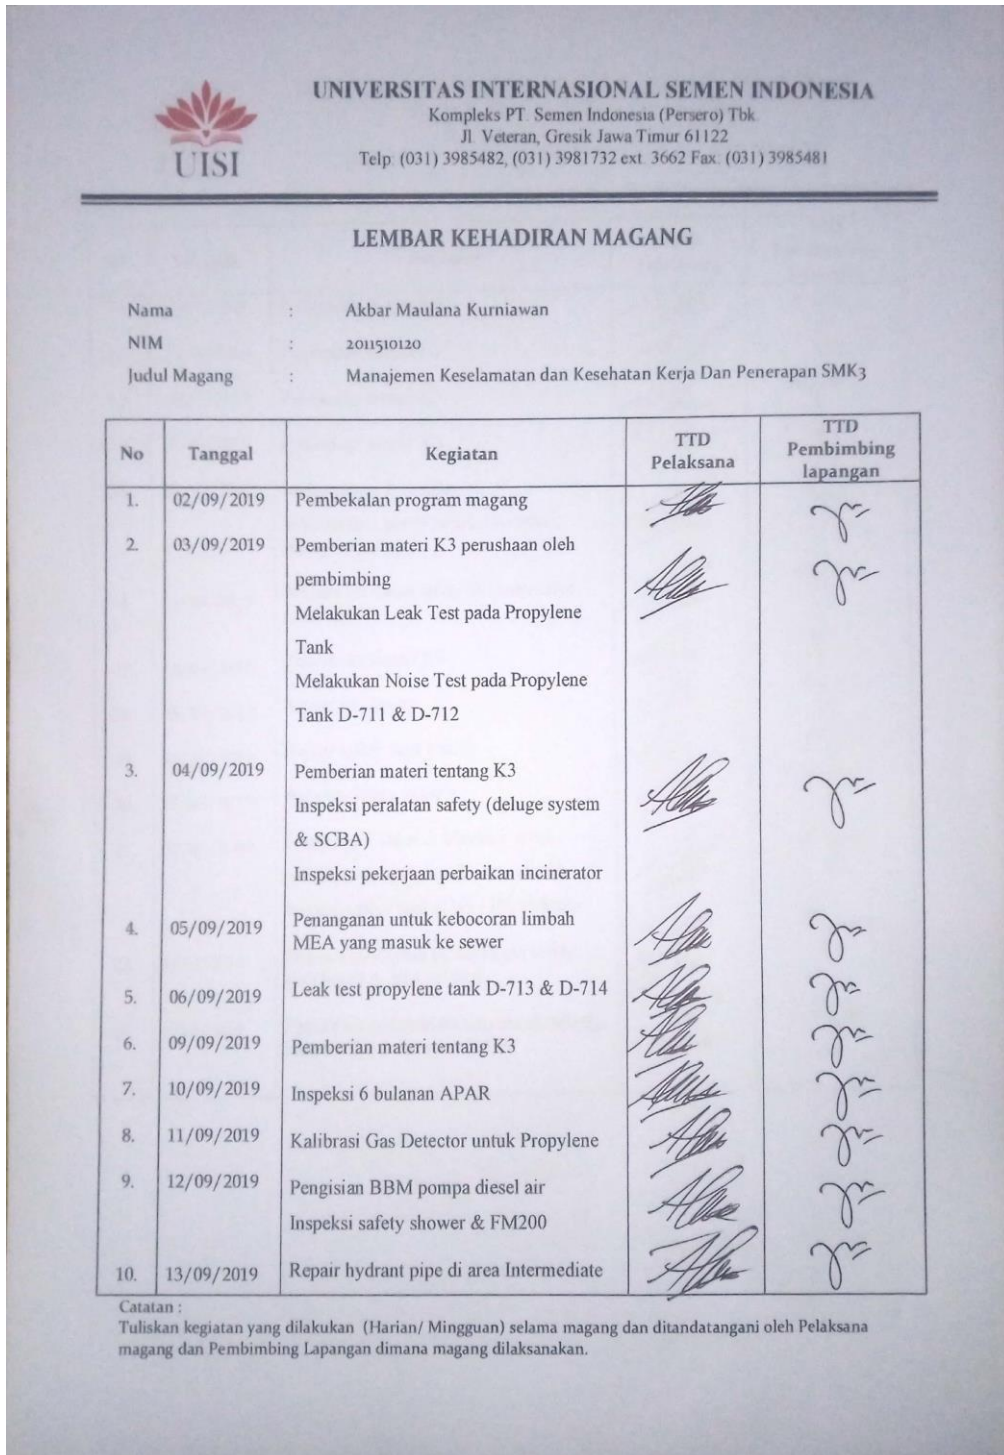 UISI
UNIVERSITAS INTERNASIONAL SEMEN INDONESIA
Kompleks PT. Semen Indonesia (Persero) Tbk.
Jl. Veteran, Gresik Jawa Timur 61122
Telp: (031) 3985482, (031) 3981732 ext. 3662 Fax: (031) 3985481
LEMBAR KEHADIRAN MAGANG
Nama : Akbar Maulana Kurniawan
NIM : 2011510120
Judul Magang : Manajemen Keselamatan dan Kesehatan Kerja Dan Penerapan SMK3
No Tanggal Kegiatan TTD Pelaksana TTD Pembimbing lapangan
1. 02/09/2019 Pembekalan program magang
2. 03/09/2019 Pemberian materi K3 perushaan oleh
pembimbing
Melakukan Leak Test pada Propylene
Tank
Melakukan Noise Test pada Propylene
Tank D-711 & D-712
3. 04/09/2019 Pemberian materi tentang K3
Inspeksi peralatan safety (deluge system
& SCBA)
Inspeksi pekerjaan perbaikan incinerator
4. 05/09/2019 Penanganan untuk kebocoran limbah
MEA yang masuk ke sewer
5. 06/09/2019 Leak test propylene tank D-713 & D-714
6. 09/09/2019 Pemberian materi tentang K3
7. 10/09/2019 Inspeksi 6 bulanan APAR
8. 11/09/2019 Kalibrasi Gas Detector untuk Propylene
9. 12/09/2019 Pengisian BBM pompa diesel air
Inspeksi safety shower & FM200
10. 13/09/2019 Repair hydrant pipe di area Intermediate
Catatan :
Tuliskan kegiatan yang dilakukan (Harian/ Mingguan) selama magang dan ditandatangani oleh Pelaksana
magang dan Pembimbing Lapangan dimana magang dilaksanakan.